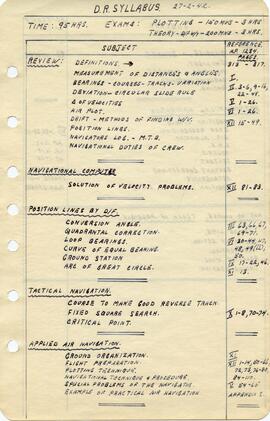 D.R. SYLLABUS. 27-2-42.
TIME: 95 HRS. EXAMS: PLOTTING - 150 MKS - 3 HRS
THEORY - 200 MKS - 3 HRS.
SUBJECT REFERENCE AP. 1234. PAGES
REVIEW: DEFINITIONS → 313 - 317.
MEASUREMENT OF DISTANCES & ANGLES. I.
BEARINGS - COURSES - TRACKS - VARIATION
DEVIATION - CIRCULAR SLIDE RULE
& OF VELOCITIES
AIR PLOT. VI 1-26.
DRIFT - METHODS OF FINDING W/V. VII 15-49.
POSITION LINES.
NAVIGATORS LOG. - M.T.B.
NAVIGATIONAL DUTIES OF CREW.
NAVIGATIONAL COMPUTER
SOLUTION OF VELOCITY PROBLEMS. XII 81-83.
POSITION LINES BY D/F.
CONVERSION ANGLE.
QUADRANTAL CORRECTION. 69-71.
LOOP BEARINGS.
CURVE OF EQUAL BEARING.
GROUND STATION 17-22, 46
ARC OF GREAT CIRCLE. 13.
TACTICAL NAVIGATION.
COURSE TO MAKE GOOD REVERSE TRACK.
FIXED SQUARE SEARCH. X 1-8, 70-74.
CRITICAL POINT.
APPLIED AIR NAVIGATION.
GROUND ORGANIZATION.
FLIGHT PREPARATION.
PLOTTING TECHNIQUE.
NAVIGATIONAL TECHNIQUE & PROCEDURE.
SPECIAL PROBLEMS OF THE NAVIGATOR.
EXAMPLE OF PRACTICAL AIR NAVIGATION APPENDIX I.